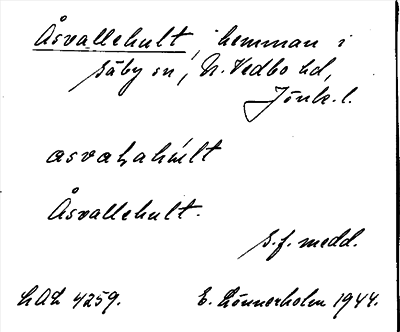 Åsvallehult, hemman i
Säby sn, N. Vedbo hd,
Jönk. l.
asvaLahúlt
Åsvallehult.
s.f. medd.
LAL 4259. E. Lönnerholm 1944.